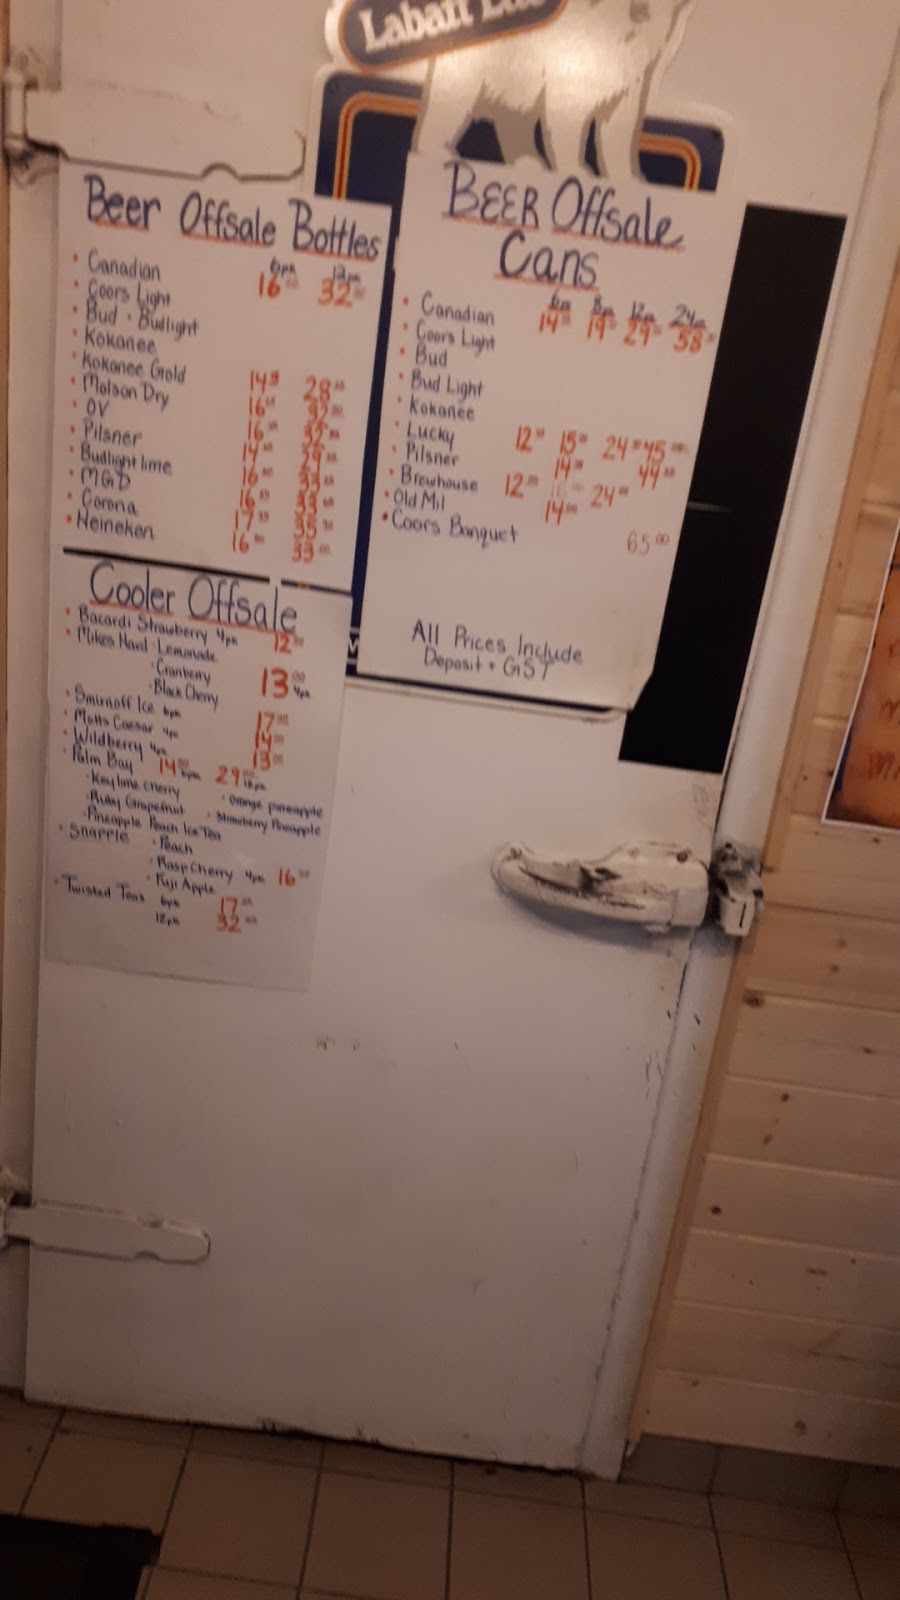 Labatt Lite
Beer Offsale Bottles
6pk 12pk
• Canadian 16.00 32.00
• Coors Light
• Bud • Budlight
• Kokanee
• Kokanee Gold 14.00 28.00
• Molson Dry 16.00 32.00
• OV 16.00 32.00
• Pilsner 14.00 29.00
• Budlight lime 16.00 33.00
• MGD 16.00 33.00
• Corona 17.00 35.00
• Heineken 16.00 33.00
BEER Offsale
Cans
6p 8p 12p 24p
• Canadian 14.00 19.00 29.00 58.00
• Coors Light
• Bud
• Bud Light
• Kokanee
• Lucky 12.00 15.00 24.00 45.00
• Pilsner 14.00 44.00
• Brewhouse 12.00 24.00
• Old Mil 14.00
• Coors Banquet 65.00
All Prices Include
Deposit + GST
Cooler Offsale
• Bacardi Strawberry 4pk 12.00
• Mikes Hard • Lemonade
• Cranberry 13.00 4pk
• Black Cherry
• Smirnoff Ice 6pk 17.00
• Motts Caesar 4pk 14.00
• Wildberry 4pk 13.00
• Palm Bay 14.00 6pk 29.00 12pk
• Key lime cherry • Orange pineapple
• Ruby Grapefruit • Strawberry Pineapple
• Pineapple Peach Ice Tea
• Snapple • Peach
• Rasp Cherry 4pk 16.00
• Fuji Apple
• Twisted Teas 6pk 17.00
12pk 32.00